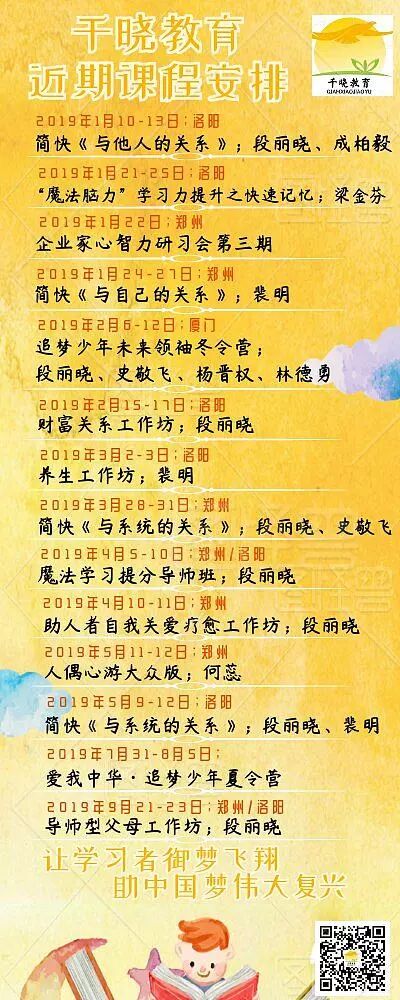 千晓教育
近期课程安排
千晓教育
QIANXIAOJIAOYU
2019年1月10-13日；洛阳
简快《与他人的关系》；段丽晓、成柏毅
2019年1月21-25日；洛阳
“魔法脑力”学习力提升之快速记忆；梁金芬
2019年1月22日；郑州
企业家心智力研习会第三期
2019年1月24-27日；郑州
简快《与自己的关系》；裴明
2019年2月6-12日；厦门
追梦少年未来领袖冬令营；
段丽晓、史敬飞、杨晋权、林德勇
2019年2月15-17日；洛阳
财富关系工作坊；段丽晓
2019年3月2-3日；洛阳
养生工作坊；裴明
2019年3月28-31日；郑州
简快《与系统的关系》；段丽晓、史敬飞
2019年4月5-10日；郑州/洛阳
魔法学习提分导师班；段丽晓
2019年4月10-11日；郑州
助人者自我关爱疗愈工作坊；段丽晓
2019年5月11-12日；郑州
人偶心游大众版；何蕊
2019年5月9-12日；洛阳
简快《与系统的关系》；段丽晓、裴明
2019年7月31-8月5日；
爱我中华·追梦少年夏令营
2019年9月21-23日；郑州/洛阳
导师型父母工作坊；段丽晓
让学习者御梦飞翔
助中国梦伟大复兴